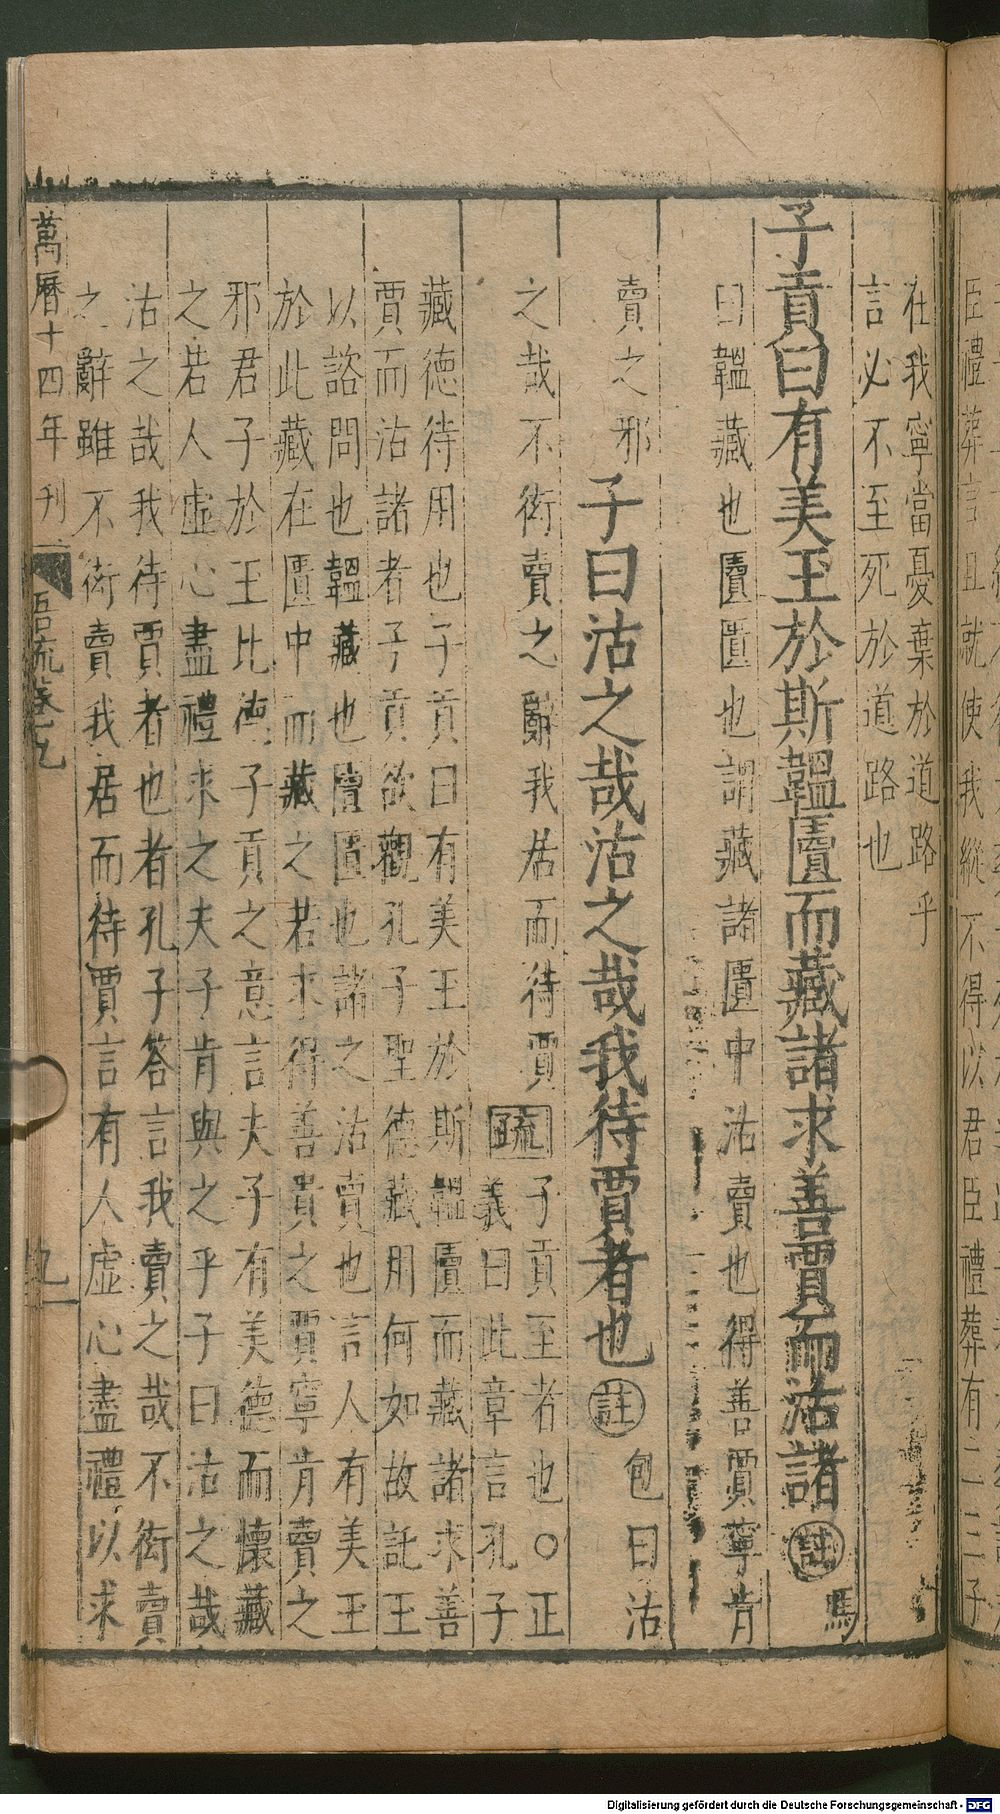 臣禮葬言且就使我縱不得以君臣禮葬有二三子
在我寧當憂棄於道路乎
言必不至死於道路也
子貢曰有美玉於斯韞匵而藏諸求善賈而沽諸註馬
曰韞藏也匵匱也謂藏諸匱中沽賣也得善賈寧肯
賣之邪 子曰沽之哉沽之哉我待賈者也註包曰沽
之哉不衒賣之辭我居而待賈 疏子貢至者也○正
義曰此章言孔子
藏德待用也子貢曰有美玉於斯韞匵而藏諸求善
賈而沽諸者子貢欲觀孔子聖德藏用何如故託玉
以諮問也韞藏也匵匱也諸之沽賣也言人有美玉
於此藏在匱中而藏之若求得善貴之賈寧肯賣之
邪君子於玉比德子貢之意言夫子有美德而懷藏
之若人虛心盡禮求之夫子肯與之乎子曰沽之哉
沽之哉我待賈者也者孔子答言我賣之哉不衒賣
之辭雖不衒賣我居而待賈言有人虛心盡禮以求
萬曆十四年刊 語疏卷九 九
Digitalisierung gefördert durch die Deutsche Forschungsgemeinschaft - DFG